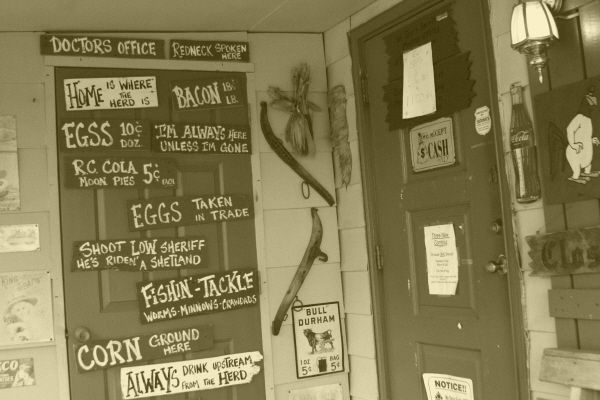 DOCTORS OFFICE
REDNECK SPOKEN
HERE
HOME IS WHERE
THE
HERD IS
BACON 18¢
LB.
EGSS 10¢
DOZ.
I'M ALWAYS HERE
UNLESS I'M GONE
R.C. COLA 5¢
MOON PIES EACH
EGGS TAKEN
IN TRADE
SHOOT LOW SHERIFF
HE'S RIDEN' A SHETLAND
FISHIN'-TACKLE
WORMS-MINNOWS-CRAWDADS
CORN GROUND
HERE
ALWAYS DRINK UPSTREAM
FROM THE HERD
BULL
DURHAM
1 OZ BAG
5¢ 5¢
WE ACCEPT
CASH
Coca-Cola
NOTICE!!